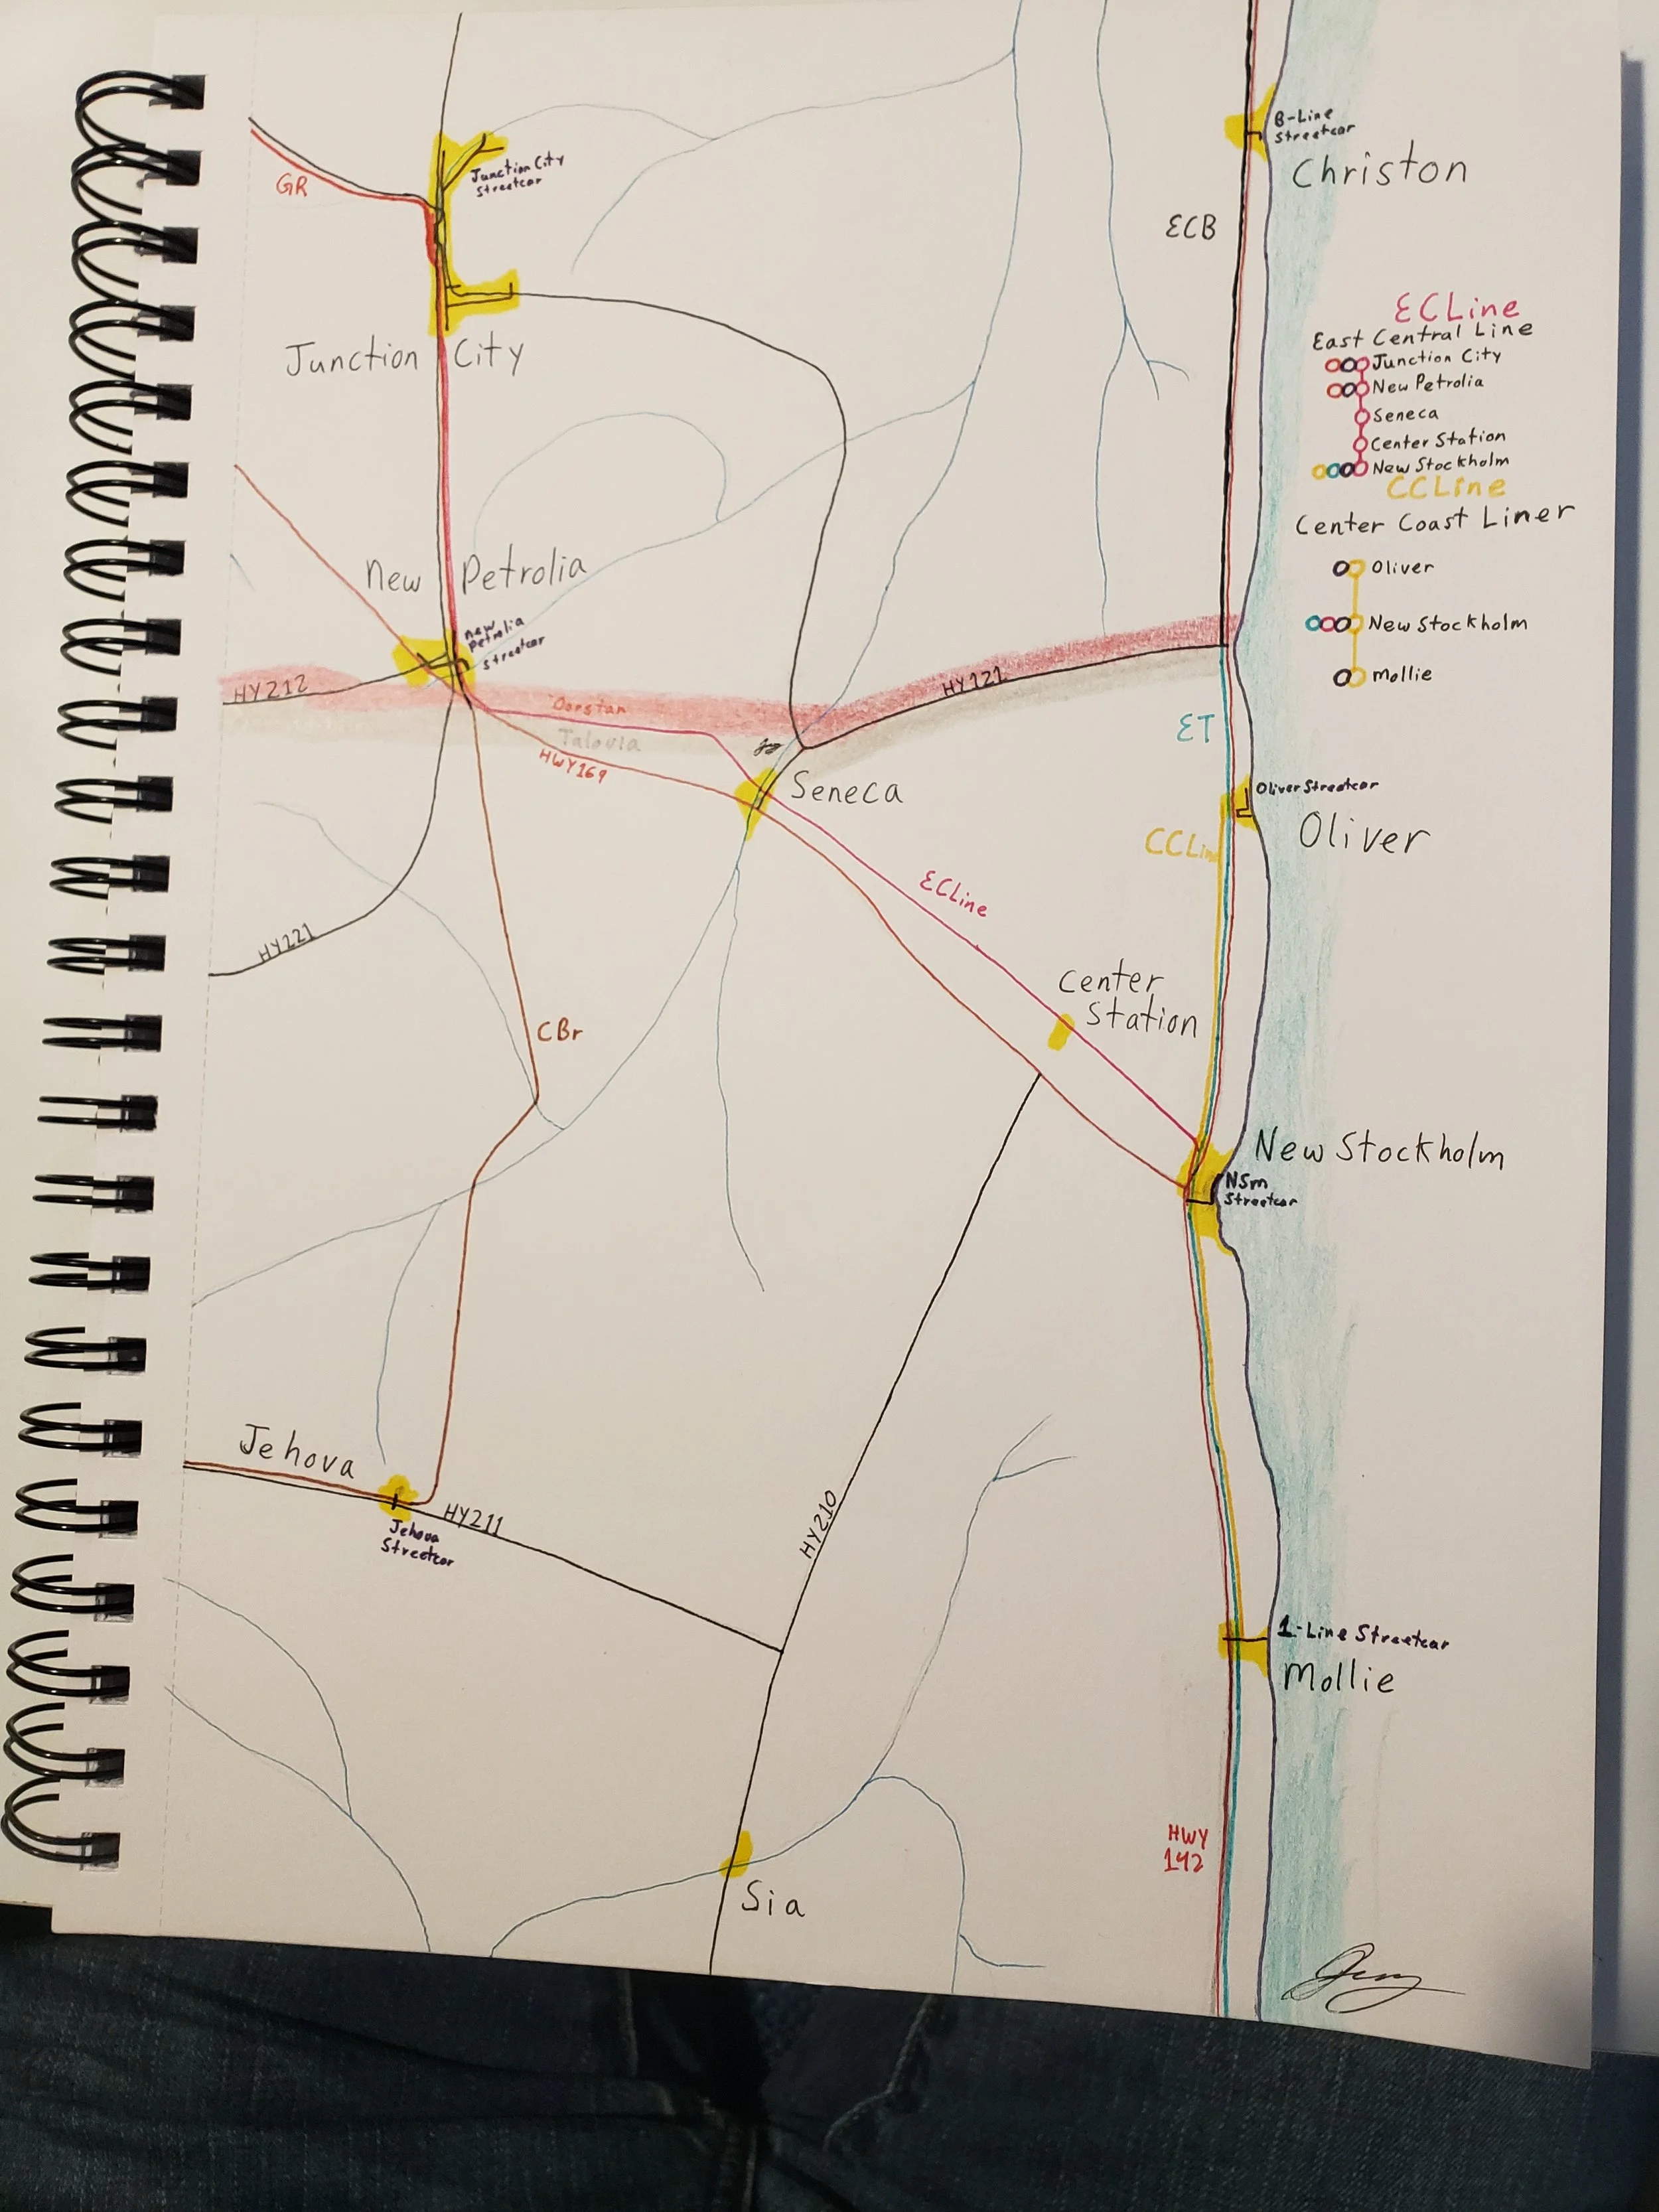 B-Line
Streetcar
Christon
Junction City
Streetcar
GR
ECB
Junction City
ECLine
East Central Line
Junction City
New Petrolia
Seneca
Center Station
New Stockholm
CCLine
Center Coast Liner
Oliver
New Stockholm
Mollie
New Petrolia
New
Petrolia
Streetcar
HY212
HY121
Dorstan
Talovia
HWY169
ET
Seneca
Oliver Streetcar
Oliver
CCLine
ECLine
HY221
Center
Station
CBr
New Stockholm
NSm
Streetcar
Jehova
HY211
Jehova
Streetcar
HY210
1-Line Streetcar
Mollie
HWY
142
Sia